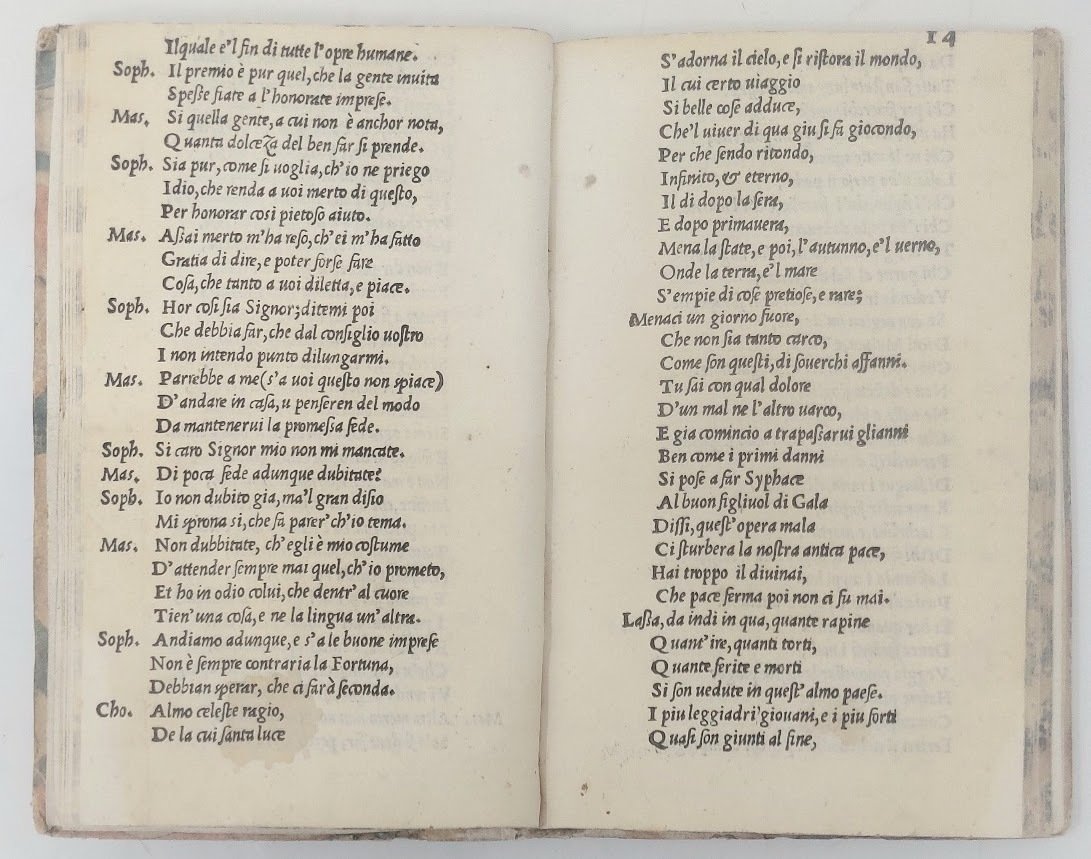 Ilquale e'l fin di tutte l'opre humane.
Soph. Il premio è pur quel, che la gente inuita
Speſſe fiate a l'honorate impreſe.
Mas. Si quella gente, a cui non è anchor nota,
Quanta dolceza del ben far ſi prende.
Soph. Sia pur, come ſi uoglia, ch'io ne priego
Idio, che renda a uoi merto di queſto,
Per honorar coſi pietoſo aiuto.
Mas. Aſſai merto m'ha reſo, ch'ei m'ha fatto
Gratia di dire, e poter forſe fare
Coſa, che tanto a uoi diletta, e piace.
Soph. Hor coſi ſia Signor; ditemi poi
Che debbia far, che dal conſiglio uoſtro
I non intendo punto dilungarmi.
Mas. Parrebbe a me (s'a uoi queſto non ſpiace)
D'andare in caſa, u penſeren del modo
Da mantenerui la promeſſa fede.
Soph. Si caro Signor mio non mi mancate.
Mas. Di poca fede adunque dubitate?
Soph. Io non dubito gia, ma'l gran diſio
Mi ſprona ſi, che fa parer' ch'io tema.
Mas. Non dubbitate, ch'egli è mio coſtume
D'attender ſempre mai quel, ch'io prometo,
Et ho in odio colui, che dentr'al cuore
Tien' una coſa, e ne la lingua un'altra.
Soph. Andiamo adunque, e s'a le buone impreſe
Non è ſempre contraria la Fortuna,
Debbian ſperar, che ci ſarà ſeconda.
Cho. Almo celeſte ragio,
De la cui ſanta luce
14
S'adorna il cielo, e ſi riſtora il mondo,
Il cui certo uiaggio
Si belle coſe adduce,
Che'l uiuer di qua giu ſi fa giocondo,
Per che ſendo ritondo,
Infinito, & eterno,
Il di dopo la ſera,
E dopo primauera,
Mena la ſtate, e poi, l'autunno, e'l uerno,
Onde la terra, e'l mare
S'empie di coſe pretioſe, e rare;
Menaci un giorno fuore,
Che non ſia tanto carco,
Come ſon queſti, di ſouerchi affanni.
Tu ſai con qual dolore
D'un mal ne l'altro uarco,
E gia comincio a trapaſſarui glianni
Ben come i primi danni
Si poſe a far Syphace
Al buon figliuol di Gala
Diſſi, queſt'opera mala
Ci ſturbera la noſtra antica pace,
Hai troppo il diuinai,
Che pace ferma poi non ci fu mai.
Laſſa, da indi in qua, quante rapine
Quant'ire, quanti torti,
Quante ferite e morti
Si ſon uedute in queſt'almo paeſe.
I piu leggiadri giouani, e i piu forti
Quaſi ſon giunti al fine,